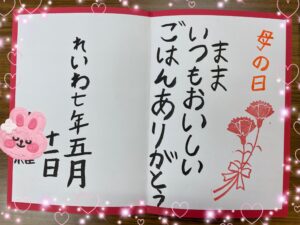 母の日
まま
いつもおいしい
ごはんありがとう
れいわ七年五月
十日